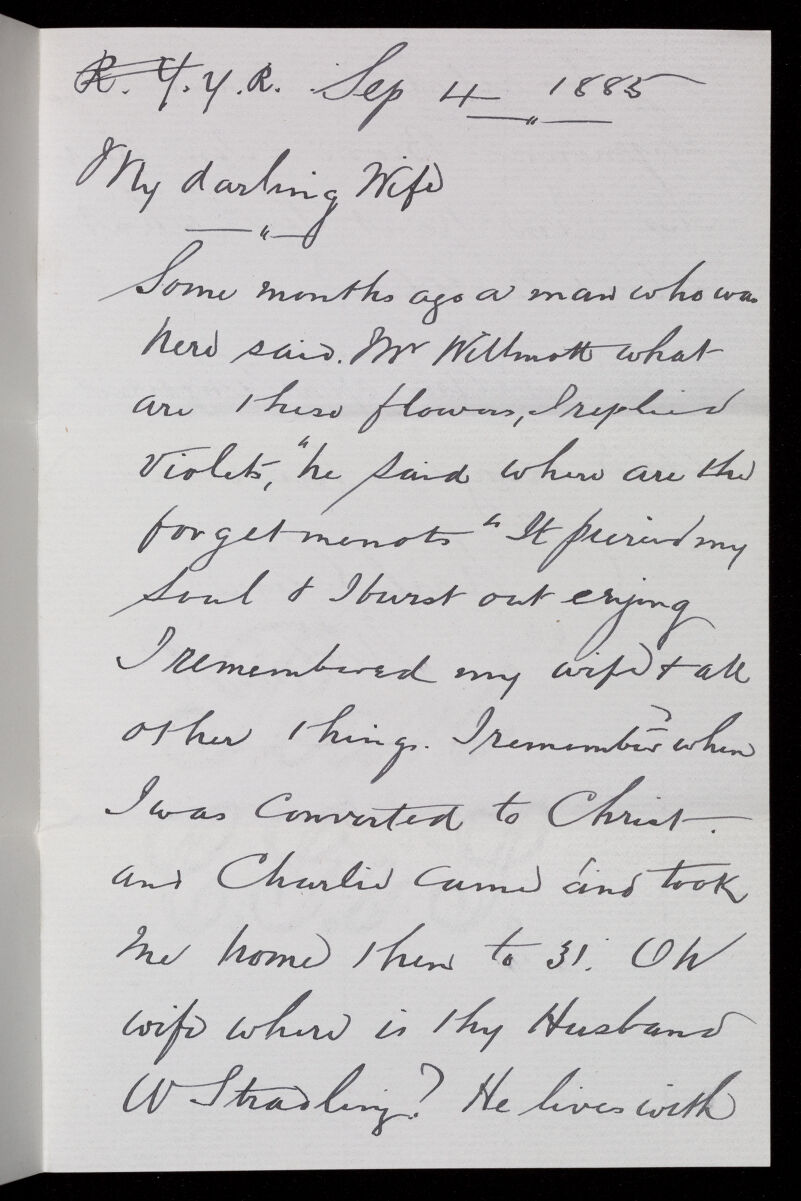 R. Y. Y. R. Sep 4 1885
My darling Wife
Some months ago a man who was
here said. Mr Willmott what
are these flowers, I replied
Violets, "he said where are the
forgetmenots" It pierced my
soul & I burst out crying
I remembered my wife & all
other things. I remember when
I was converted to Christ.
and Charlie came and took
me home then to 31. Oh
wife where is thy Husband
W Stradling? He lives with